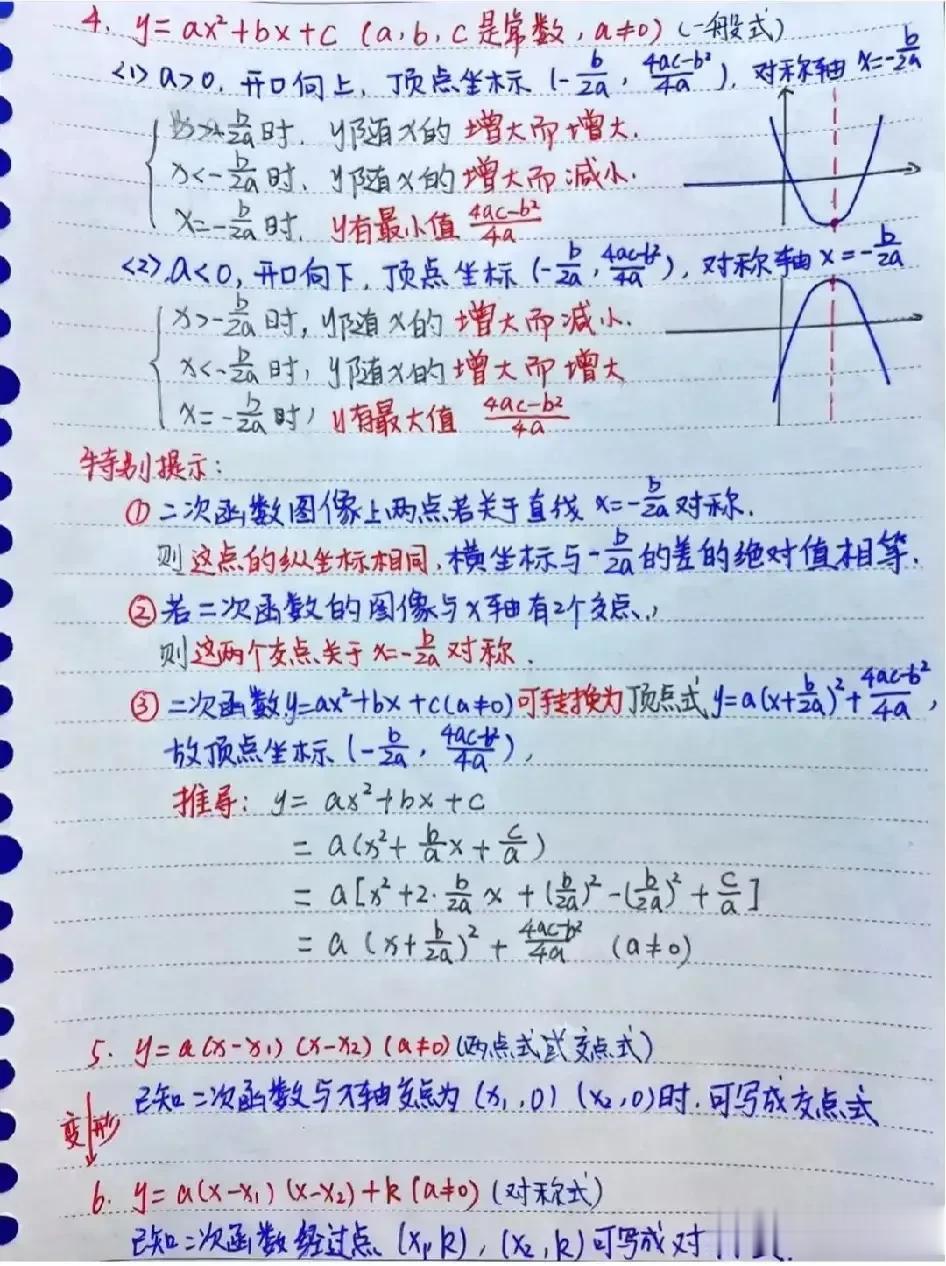 4. y=ax²+bx+c (a,b,c是常数,a≠0) (一般式)
<1> a>0, 开口向上, 顶点坐标 (-b/2a, (4ac-b²)/4a), 对称轴 x=-b/2a
x>-b/2a时, y随x的增大而增大.
x<-b/2a时, y随x的增大而减小.
x=-b/2a时, y有最小值 (4ac-b²)/4a
<2> a<0, 开口向下, 顶点坐标 (-b/2a, (4ac-b²)/4a), 对称轴 x=-b/2a
x>-b/2a时, y随x的增大而减小.
x<-b/2a时, y随x的增大而增大
x=-b/2a时, y有最大值 (4ac-b²)/4a
特别提示:
① 二次函数图像上两点若关于直线 x=-b/2a对称.
则这点的纵坐标相同,横坐标与-b/2a的差的绝对值相等.
② 若二次函数的图像与x轴有2个交点,
则这两个交点关于x=-b/2a对称.
③ 二次函数y=ax²+bx+c(a≠0)可转换为顶点式y=a(x+b/2a)²+(4ac-b²)/4a,
故顶点坐标 (-b/2a, (4ac-b²)/4a),
推导: y= ax²+bx+c
= a(x²+b/a x+c/a)
= a[x²+2·b/2a x+(b/2a)²-(b/2a)²+c/a]
= a(x+b/2a)²+(4ac-b²)/4a (a≠0)
5. y=a(x-x₁)(x-x₂)(a≠0)(两点式或交点式)
已知二次函数与x轴交点为(x₁,0)(x₂,0)时.可写成交点式
变形
6. y=a(x-x₁)(x-x₂)+k(a≠0)(对称式)
已知二次函数经过点(x₁,k),(x₂,k)可写成对